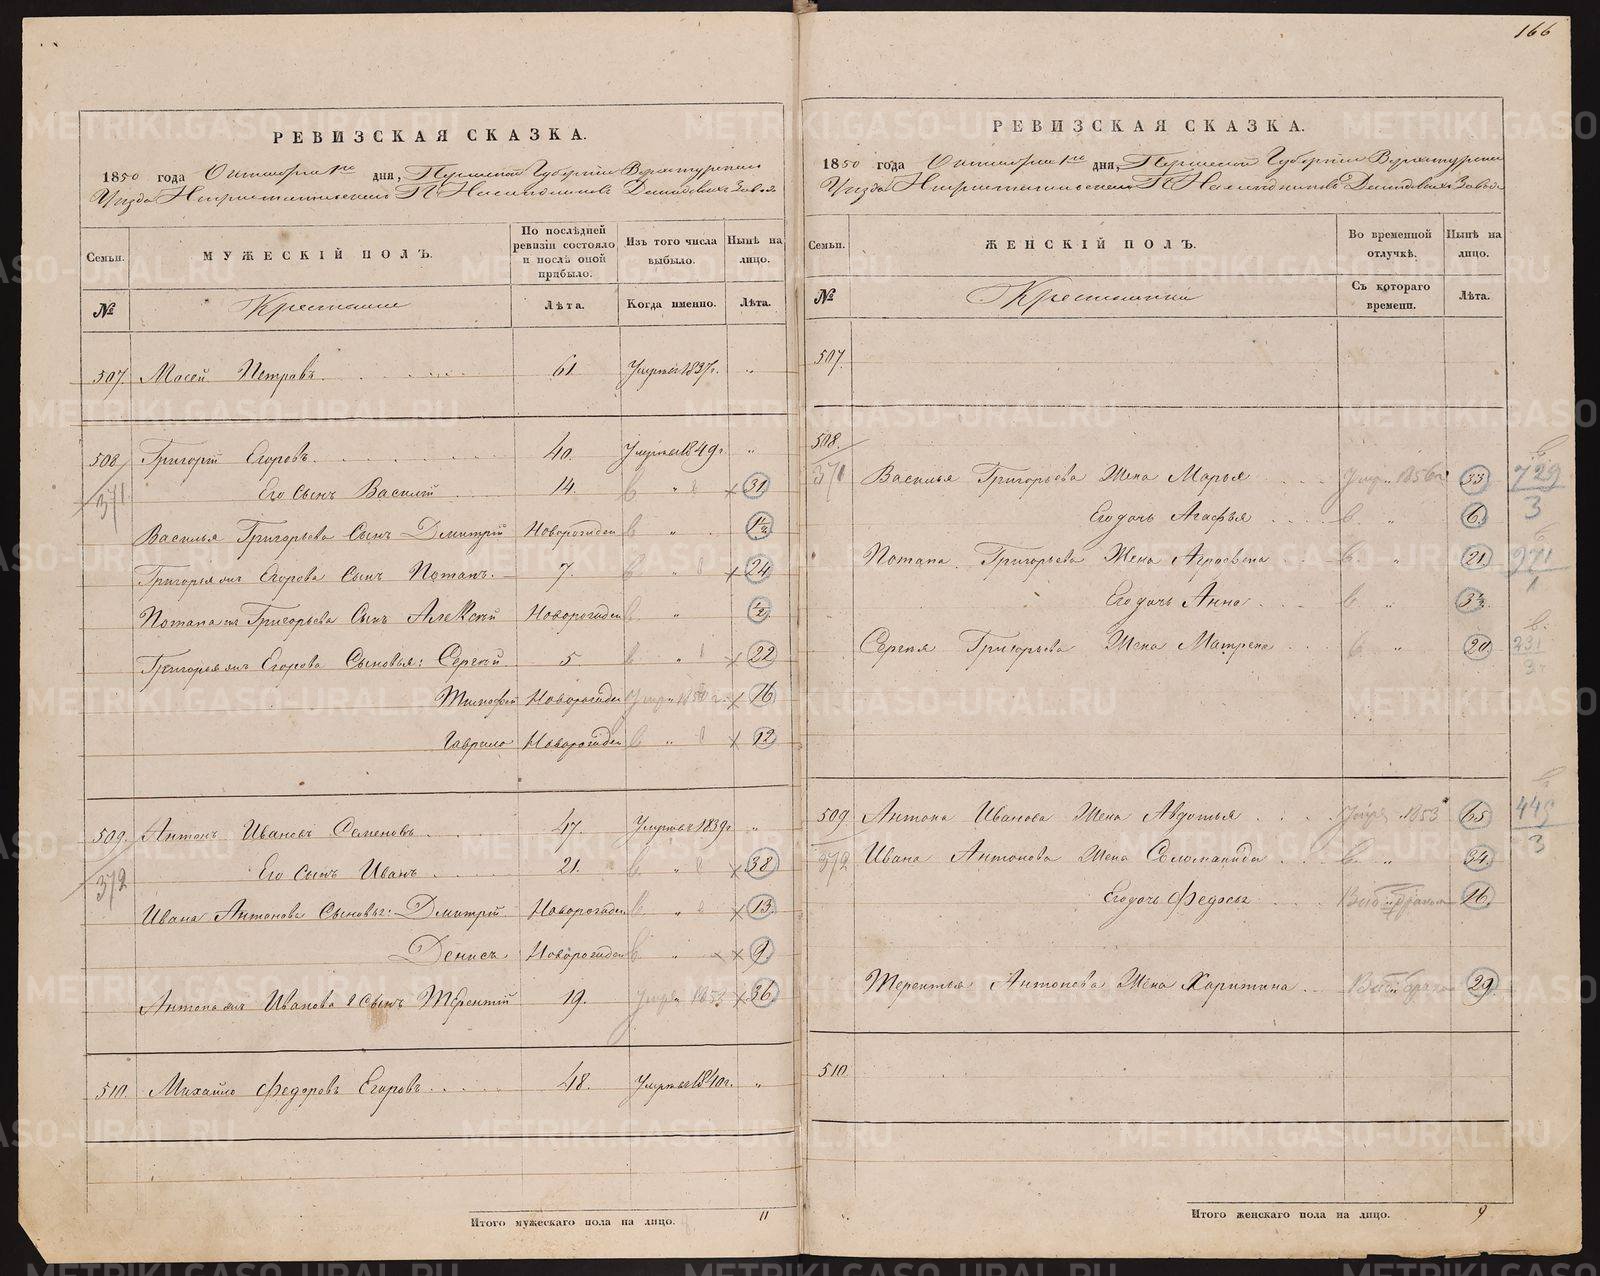 166
РЕВИЗСКАЯ СКАЗКА.
1850 года Октября 1го дня, Пермской Губернии Верхотурскаго
Уезда П. Наследниковъ Демидовыхъ Завода
Семьи.
МУЖЕСКІЙ ПОЛЪ.
По послѣдней ревизіи состояло и послѣ оной прибыло.
Изъ того числа выбыло.
Нынѣ на лицо.
№
Крестьяне
Лѣта.
Когда именно.
Лѣта.
507. Мосей Петровъ. 61 Умре въ 1837г. "
508 Григорій Егоровъ. 40. Умре въ 1849г. "
371 Его Сынъ Василій 14. " 31
Василья Григорьева Сынъ Дмитрій Новорожден " 1½
Григорья Егорова Сынъ Потапъ. 7. " 24
Потапа Григорьева Сынъ Алексѣй Новорожден " ½
Григорья Егорова Сыновья: Сергѣй 5 " 22
Тимофей Новорожден 16
Гаврило Новорожден " 12
509. Антонъ Ивановъ Семеновъ. 47. Умре въ 1839г "
372 Его Сынъ Иванъ 21. " 38
Ивана Антонова Сыновья: Дмитрій Новорожден " 13.
Денисъ Новорожден " 9.
Антона Иванова 2 Сынъ Терентій 19. 1853 36.
510. Михайло Федоровъ Егоровъ. 48. Умре въ 1840г. "
Итого мужескаго пола на лицо. 11
РЕВИЗСКАЯ СКАЗКА.
1850 года Октября 1го дня, Пермской Губерніи Верхотурскаго
Уезда П. Наследниковъ Демидовыхъ Завода
Семьи.
ЖЕНСКІЙ ПОЛЪ.
Во временной отлучкѣ.
Нынѣ на лицо.
№
Крестьянки
Съ котораго времени.
Лѣта.
507.
508.
371 Василья Григорьева Жена Марья 1856 33 729
3
Его дочь Агафья " 6.
Потапа Григорьева Жена Агросвена " 21 971
1
Его дочь Анна " 3½
Сергея Григорьева Жена Матрена " 20 231
3
509 Антона Иванова Жена Авдотья 1853 65 445
3
372 Ивана Антонова Жена Соломанида " 34.
Его дочь Федосья 16.
Терентья Антонова Жена Харитина 29.
510
Итого женскаго пола на лицо. 9
METRIKI.GASO-URAL.RU